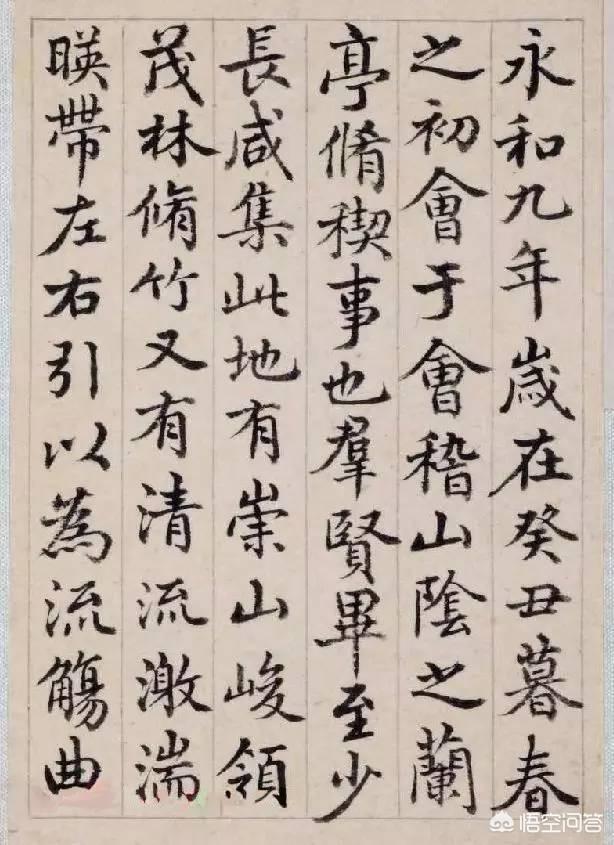 永和九年歲在癸丑暮春
之初會于會稽山陰之蘭
亭脩稧事也羣賢畢至少
長咸集此地有崇山峻領
茂林脩竹又有清流激湍
暎帶左右引以為流觴曲
悟空问答